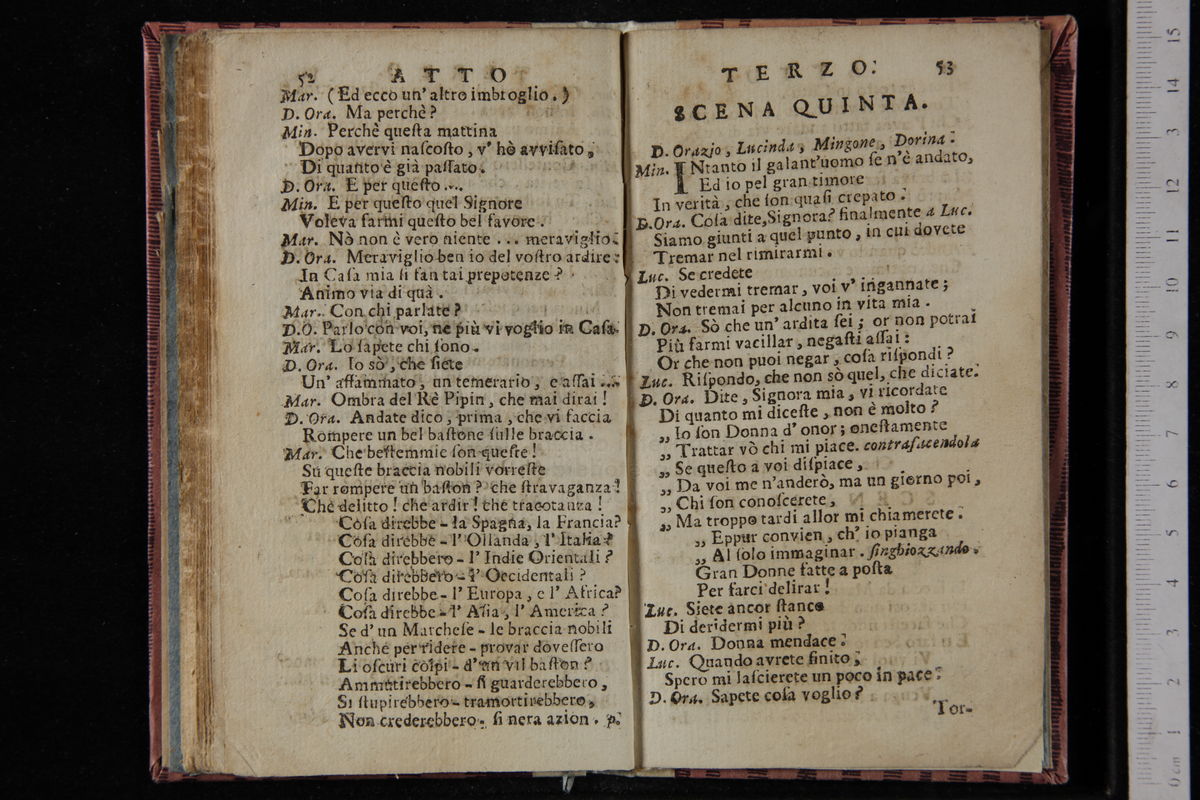 52 ATTO
Mar. (Ed ecco un' altro imbroglio.)
D. Ora. Ma perchè?
Min. Perchè queſta mattina
Dopo avervi naſcoſto, v' hò avviſato,
Di quanto è già paſſato.
D. Ora. E per queſto ....
Min. E per queſto quel Signore
Voleva farmi queſto bel favore.
Mar. Nò non è vero niente ... meraviglio.
D. Ora. Meraviglio ben io del voſtro ardire:
In Caſa mia ſi fan tai prepotenze?
Animo via di quà.
Mar. Con chi parlate?
D.O. Parlo con voi, ne più vi voglio in Caſa.
Mar. Lo ſapete chi ſono.
D. Ora. Io sò, che ſiete
Un' affammato, un temerario, e aſſai ...
Mar. Ombra del Rè Pipin, che mai dirai!
D. Ora. Andate dico, prima, che vi faccia
Rompere un bel baſtone ſulle braccia.
Mar. Che beſtemmie ſon queſte!
Su queſte braccia nobili vorreſte
Far rompere un baſton? che ſtravaganza!
Che delitto! che ardir! che tracotanza!
Coſa direbbe - la Spagna, la Francia?
Coſa direbbe - l' Ollanda, l' Italia?
Coſa direbbero - l' Indie Orientali?
Coſa direbbero - l' Occidentali?
Coſa direbbe - l' Europa, e l' Africa?
Coſa direbbe - l' Aſia, l' America?
Se d' un Marcheſe - le braccia nobili
Anche per ridere - provar doveſſero
Li oſcuri colpi - d' un vil baſton?
Ammutirebbero - ſi guarderebbero,
Si ſtupirebbero - tramortirebbero,
Non crederebbero - ſi nera azion. p.
TERZO. 53
SCENA QUINTA.
D. Orazio, Lucinda, Mingone, Dorina.
Min. INtanto il galant'uomo ſe n'è andato,
Ed io pel gran timore
In verità, che ſon quaſi crepato.
D. Ora. Coſa dite, Signora? finalmente a Luc.
Siamo giunti a quel punto, in cui dovete
Tremar nel rimirarmi.
Luc. Se credete
Di vedermi tremar, voi v' ingannate;
Non tremai per alcuno in vita mia.
D. Ora. Sò che un' ardita ſei; or non potrai
Più farmi vacillar, negaſti aſſai:
Or che non puoi negar, coſa riſpondi?
Luc. Riſpondo, che non sò quel, che diciate.
D. Ora. Dite, Signora mia, vi ricordate
Di quanto mi diceſte, non è molto?
„ Io ſon Donna d' onor; oneſtamente
„ Trattar vò chi mi piace. contrafacendola
„ Se queſto a voi diſpiace,
„ Da voi me n'anderò, ma un giorno poi,
„ Chi ſon conoſcerete,
„ Ma troppo tardi allor mi chiamerete.
„ Eppur convien, ch' io pianga
„ Al ſolo immaginar. ſinghiozzando.
Gran Donne fatte a poſta
Per farci delirar!
Luc. Siete ancor ſtanco
Di deridermi più?
D. Ora. Donna mendace.
Luc. Quando avrete finito,
Spero mi laſcierete un poco in pace.
D. Ora. Sapete coſa voglio?
Tor-
15
14
13
12
11
10
9
8
7
6
5
4
3
2
1
0 cm